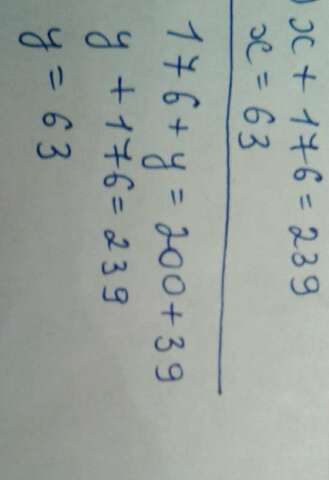 ) x + 176 = 239
x = 63
176 + y = 200 + 39
y + 176 = 239
y = 63